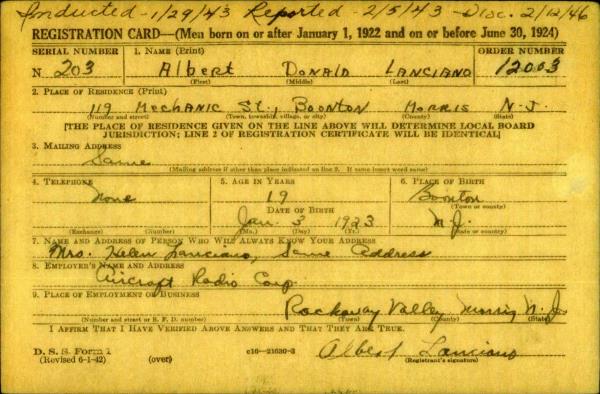 Inducted - 1/29/43 Reported - 2/5/43 - Disc. 2/12/46
REGISTRATION CARD—(Men born on or after January 1, 1922 and on or before June 30, 1924)
SERIAL NUMBER 1. NAME (Print) ORDER NUMBER
N 203 Albert DONALD LANCIANO 12003
(First) (Middle) (Last)
2. PLACE OF RESIDENCE (Print)
119 MECHANIC ST., BOONTON MORRIS N.J.
(Number and street) (Town, township, village, or city) (County) (State)
[THE PLACE OF RESIDENCE GIVEN ON THE LINE ABOVE WILL DETERMINE LOCAL BOARD
JURISDICTION; LINE 2 OF REGISTRATION CERTIFICATE WILL BE IDENTICAL]
3. MAILING ADDRESS
Same
(Mailing address if other than place indicated on line 2. If same insert word same)
4. TELEPHONE 5. AGE IN YEARS 6. PLACE OF BIRTH
None 19 Boonton
DATE OF BIRTH (Town or county)
Jan. 3 1923 N.J.
(Exchange) (Number) (Mo.) (Day) (Yr.) (State or country)
7. NAME AND ADDRESS OF PERSON WHO WILL ALWAYS KNOW YOUR ADDRESS
Mrs. Helen Lanciano, Same Address
8. EMPLOYER'S NAME AND ADDRESS
Aircraft Radio Corp.
9. PLACE OF EMPLOYMENT OR BUSINESS
Rockaway Valley Morris N.J.
(Number and street or R. F. D. number) (Town) (County) (State)
I AFFIRM THAT I HAVE VERIFIED ABOVE ANSWERS AND THAT THEY ARE TRUE.
D. S. S. Form 1
(Revised 6-1-42) (over) c16—21630-2 Albert Lanciano
(Registrant's signature)